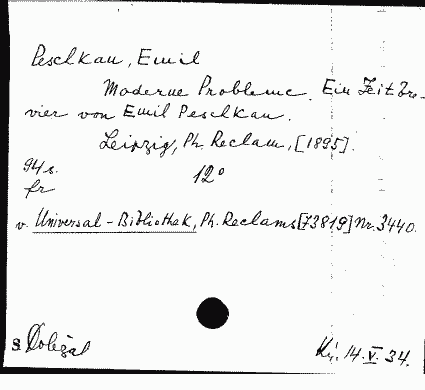 Peschkau, Emil
Moderne Probleme. Ein Zeitbre-
vier von Emil Peschkau.
Leipzig, Ph. Reclam, [1895].
94 s.
12°
fr
v. Universal-Bibliothek, Ph. Reclams [73819] Nr. 3440.
s Doležal
Kř. 14. V. 34.